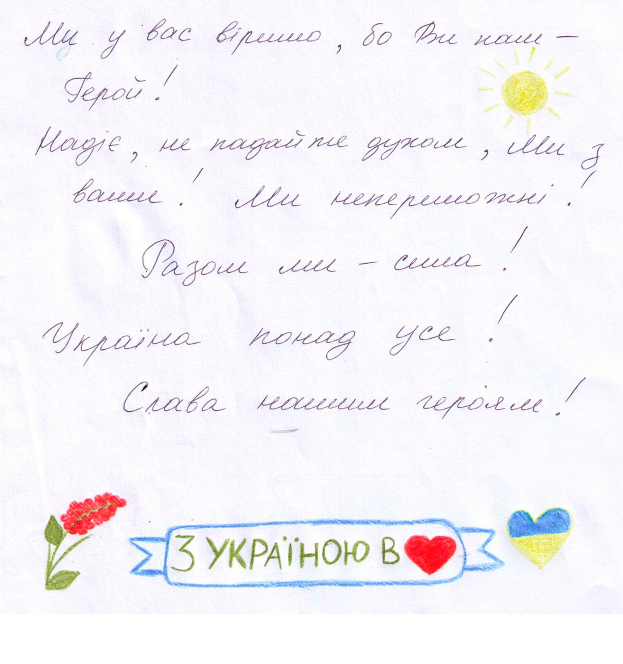 Ми у вас віримо, бо Ви наш –
Герой!
Надіє, не падайте духом, Ми з
вами! Ми непереможні!
Разом ми – сила!
Україна понад усе!
Слава нашим героям!
З УКРАЇНОЮ В